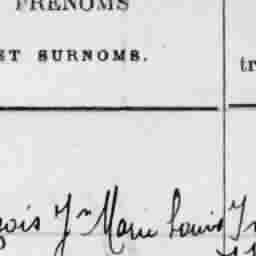 PRÉNOMS
ET SURNOMS.
tr
çois Jn Marie Louis